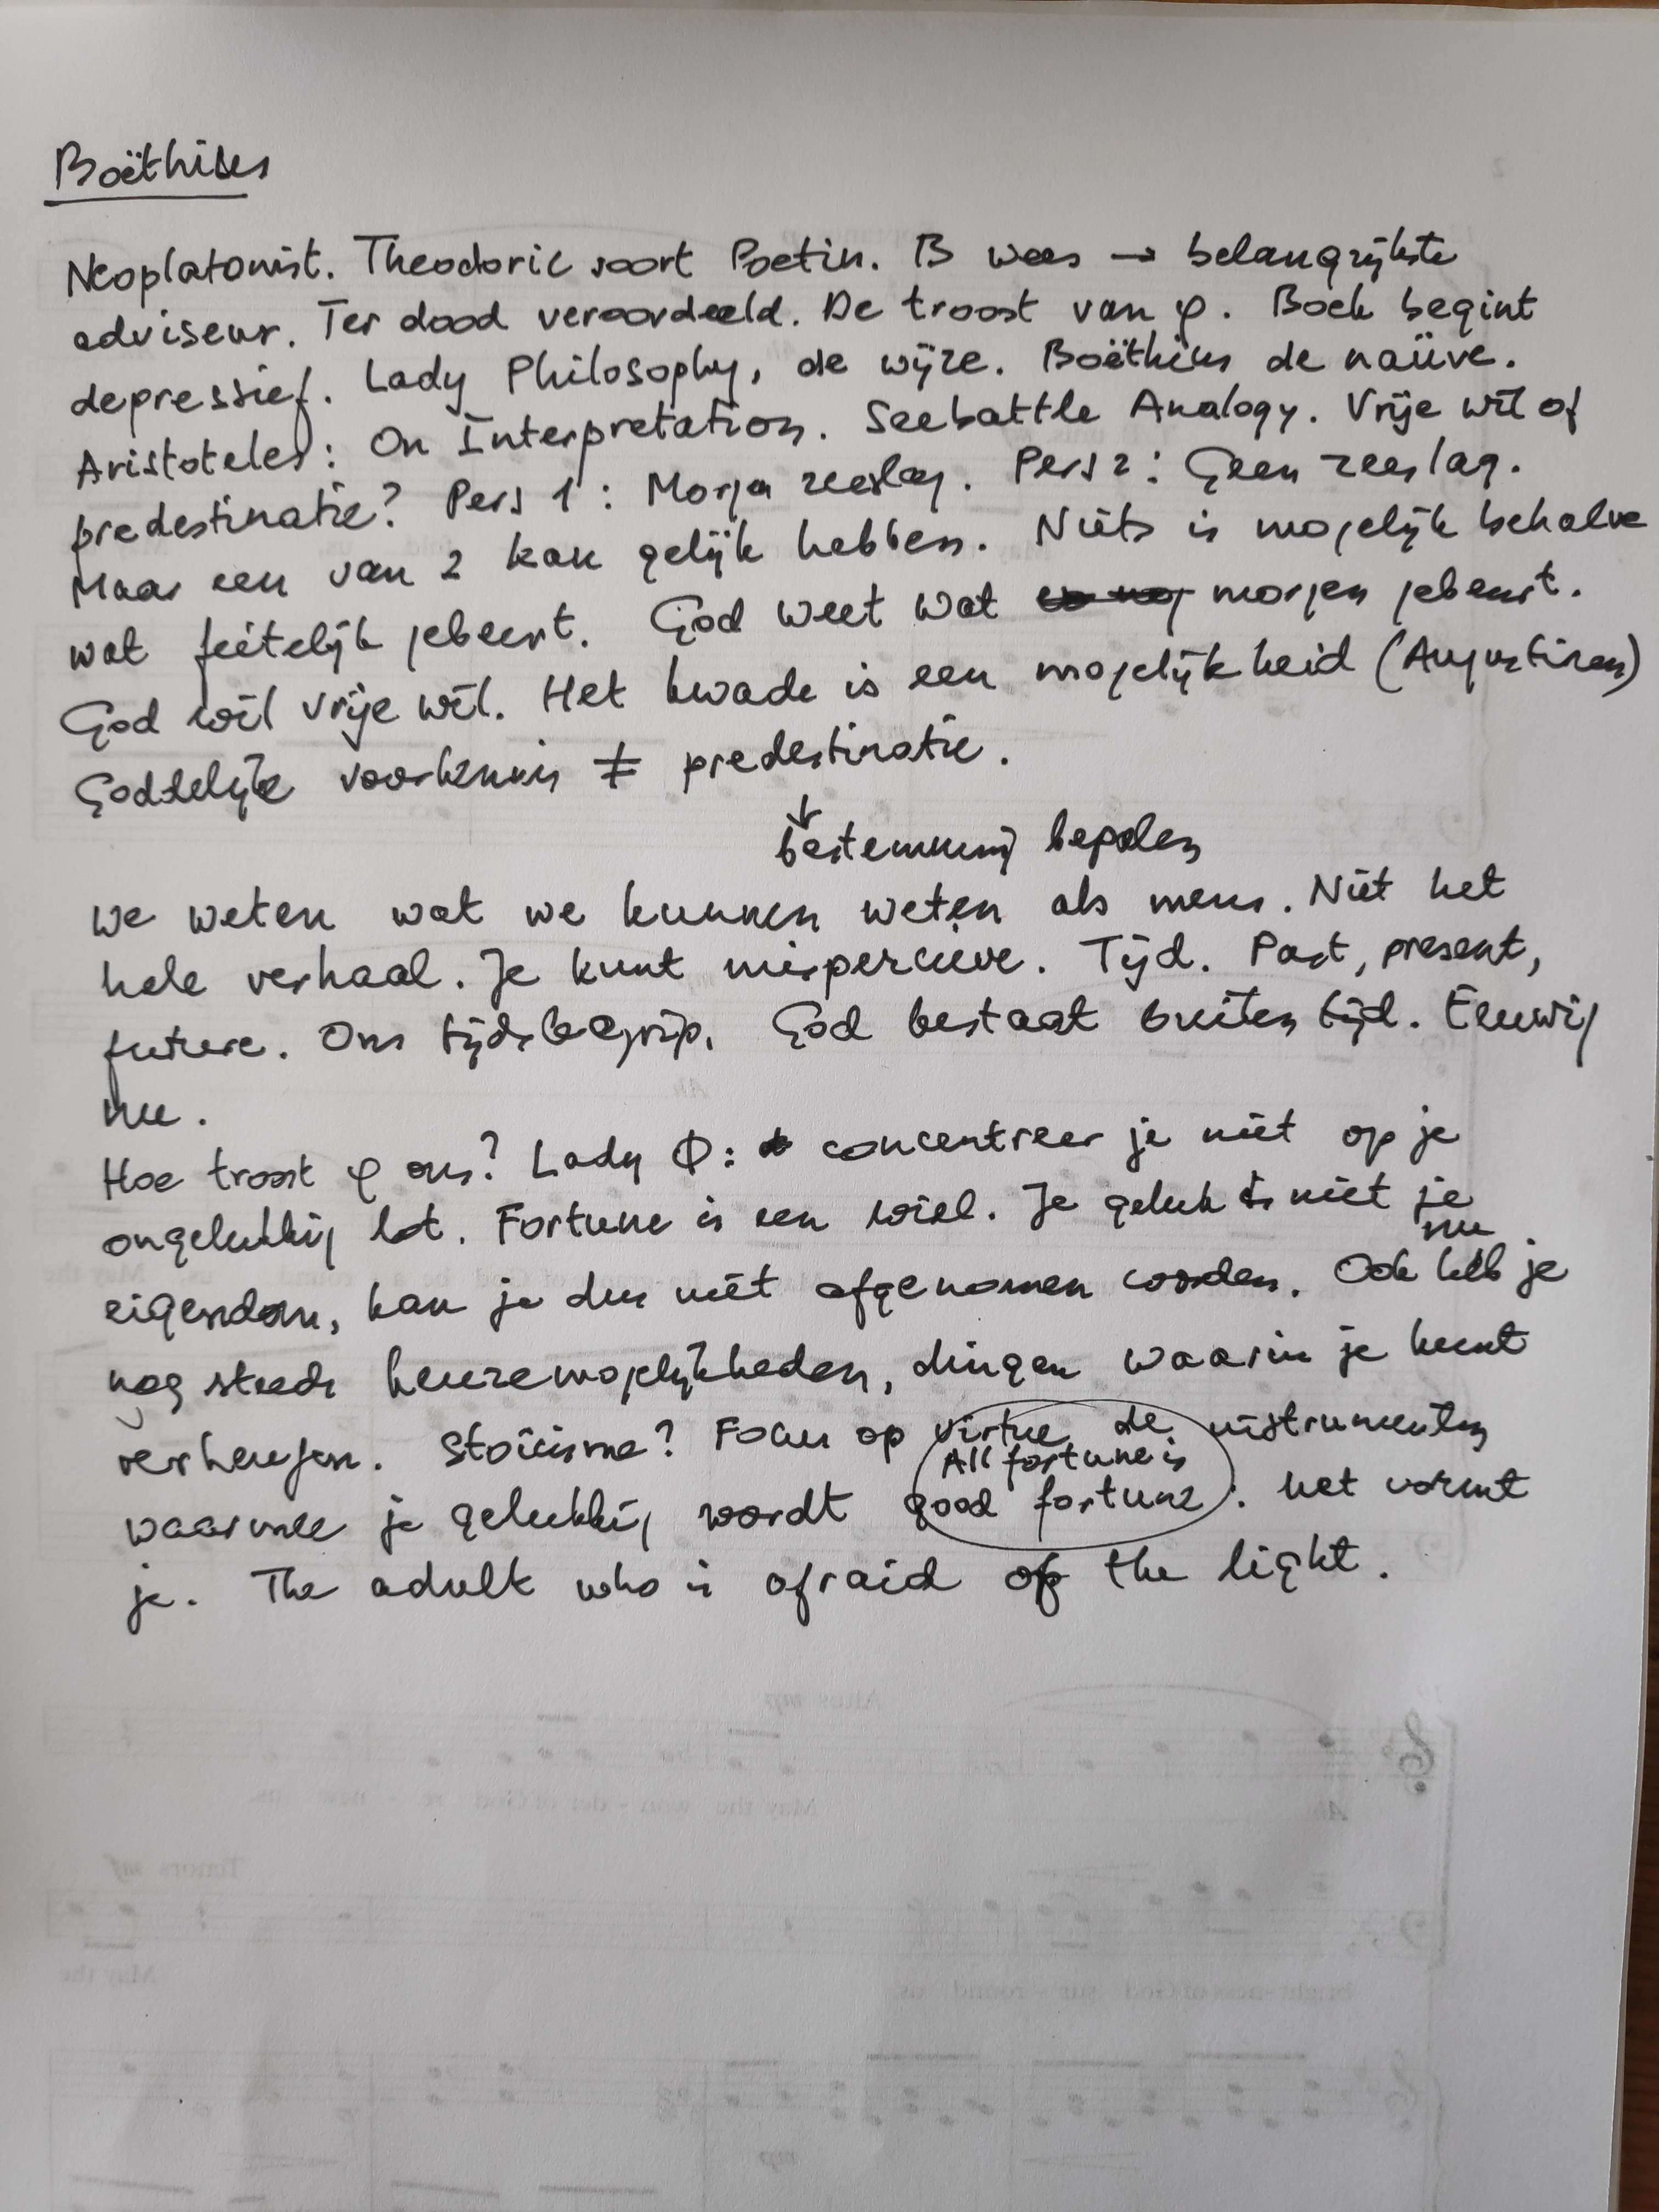 Boëthius
Neoplatonist. Theodoric soort Poetin. B wees → belangrijkste
adviseur. Ter dood veroordeeld. De troost van φ. Boek begint
depressief. Lady Philosophy, de wijze. Boëthius de naïve.
Aristoteles: On Interpretation. Seebattle Analogy. Vrije wil of
predestinatie? Pers 1: Morgen zeeslag. Pers 2: Geen zeeslag.
Maar een van 2 kan gelijk hebben. Niets is mogelijk behalve
wat feitelijk gebeurt. God weet wat morgen gebeurt.
God wil vrije wil. Het kwade is een mogelijkheid (Augustinus)
Goddelijke voorkennis ≠ predestinatie.
↓
bestemming bepalen
We weten wat we kunnen weten als mens. Niet het
hele verhaal. Je kunt misperceive. Tijd. Past, present,
future. Ons tijdsbegrip. God bestaat buiten tijd. Eeuwig
nu.
Hoe troost φ ons? Lady Φ: concentreer je niet op je
ongelukkig lot. Fortune is een wiel. Je geluk is niet je
eigendom, kan je dus niet afgenomen worden. Ook heb je nu
nog steeds keuzemogelijkheden, dingen waarin je kunt
verheugen. Stoïcisme? Focus op virtue de instrumenten
waarmee je gelukkig wordt All fortune is good fortune. het vormt
je. The adult who is afraid of the light.